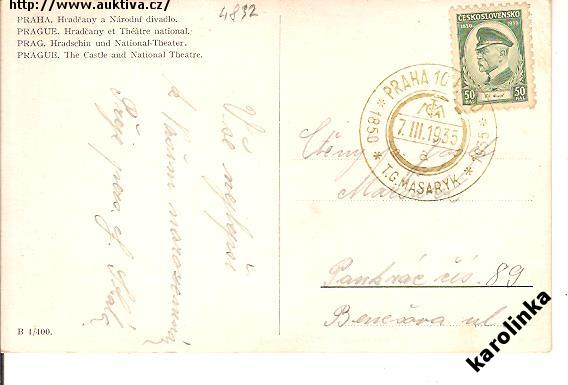 http://www.auktiva.cz
4832
PRAHA, Hradčany a Národní divadlo.
PRAGUE. Hradčany et Théâtre national.
PRAG. Hradschin und National-Theater.
PRAGUE. The Castle and National Theatre.
Vše nejlepší
k
Přeje
B 1/400.
ČESKOSLOVENSKO
1850 1935
50 50
HAL. HAL.
PRAHA 10
7.III.1935
* 1850 * T.G. MASARYK * 1935 *
Pankrác čís. 89
Benešova ul.
karolinka